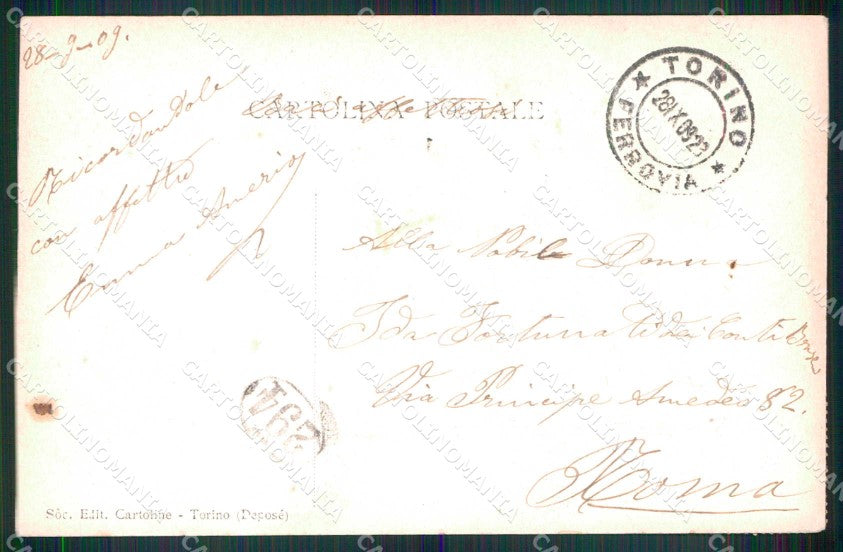 28-9-09.
CARTOLINA POSTALE
Ricordandole
con affetto
Emma Amerio
TORINO
FERROVIA
28 IX 09 23
Alla Nobile Donna
Ida Fortunati dei Conti
Via Principe Amedeo 82.
Roma
Soc. Edit. Cartoline - Torino (Deposé)
CARTOLINOMANIA